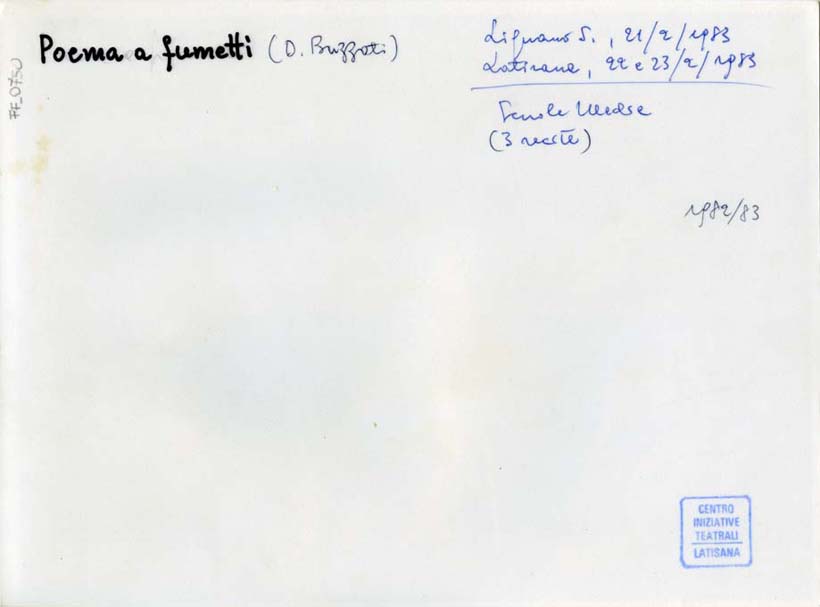 Poema a fumetti (D. Buzzati)
Lignano S., 21/2/1983
Latisana, 22 e 23/2/1983
Scuole Medie
(3 recite)
1982/83
FF_0730
CENTRO
INIZIATIVE
TEATRALI
LATISANA